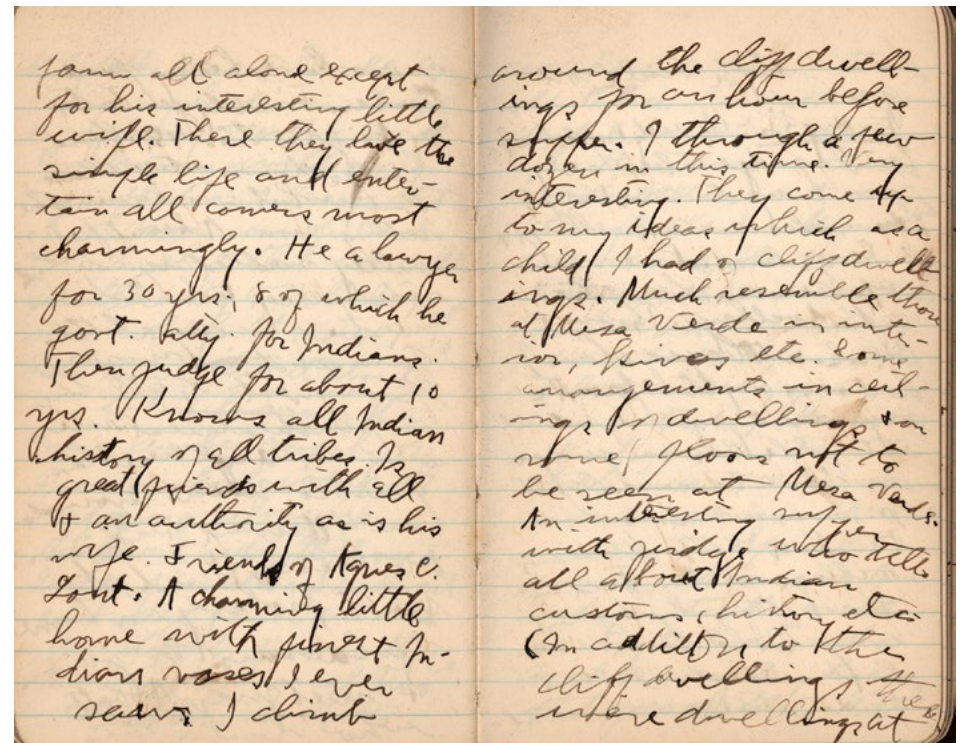 farm all alone except
for his interesting little
wife. There they live the
simple life and enter-
tain all comers most
charmingly. He a lawyer
for 30 yrs; 8 of which he
govt. atty. for Indians.
Then judge for about 10
yrs. Knows all Indian
history of all tribes. Is
great friends with all
& an authority as is his
wife. Friend of Agnes C.
Laut. A charming little
home with finest In-
dian vases I ever
saw. I climb
around the cliff dwell-
ings for an hour before
supper. I through a few
dozen in this time. Very
interesting. They come up
to my ideas which as a
child I had of cliff dwell-
ings. Much resemble those
at Mesa Verde in inte-
rior, kivas etc. Some
arrangements in ceil-
ings of dwellings & on
some floors not to
be seen at Mesa Verde.
An interesting supper
with judge who tells
all about Indian
customs, history etc.
(In addition to the
cliff dwellings there
were dwellings at